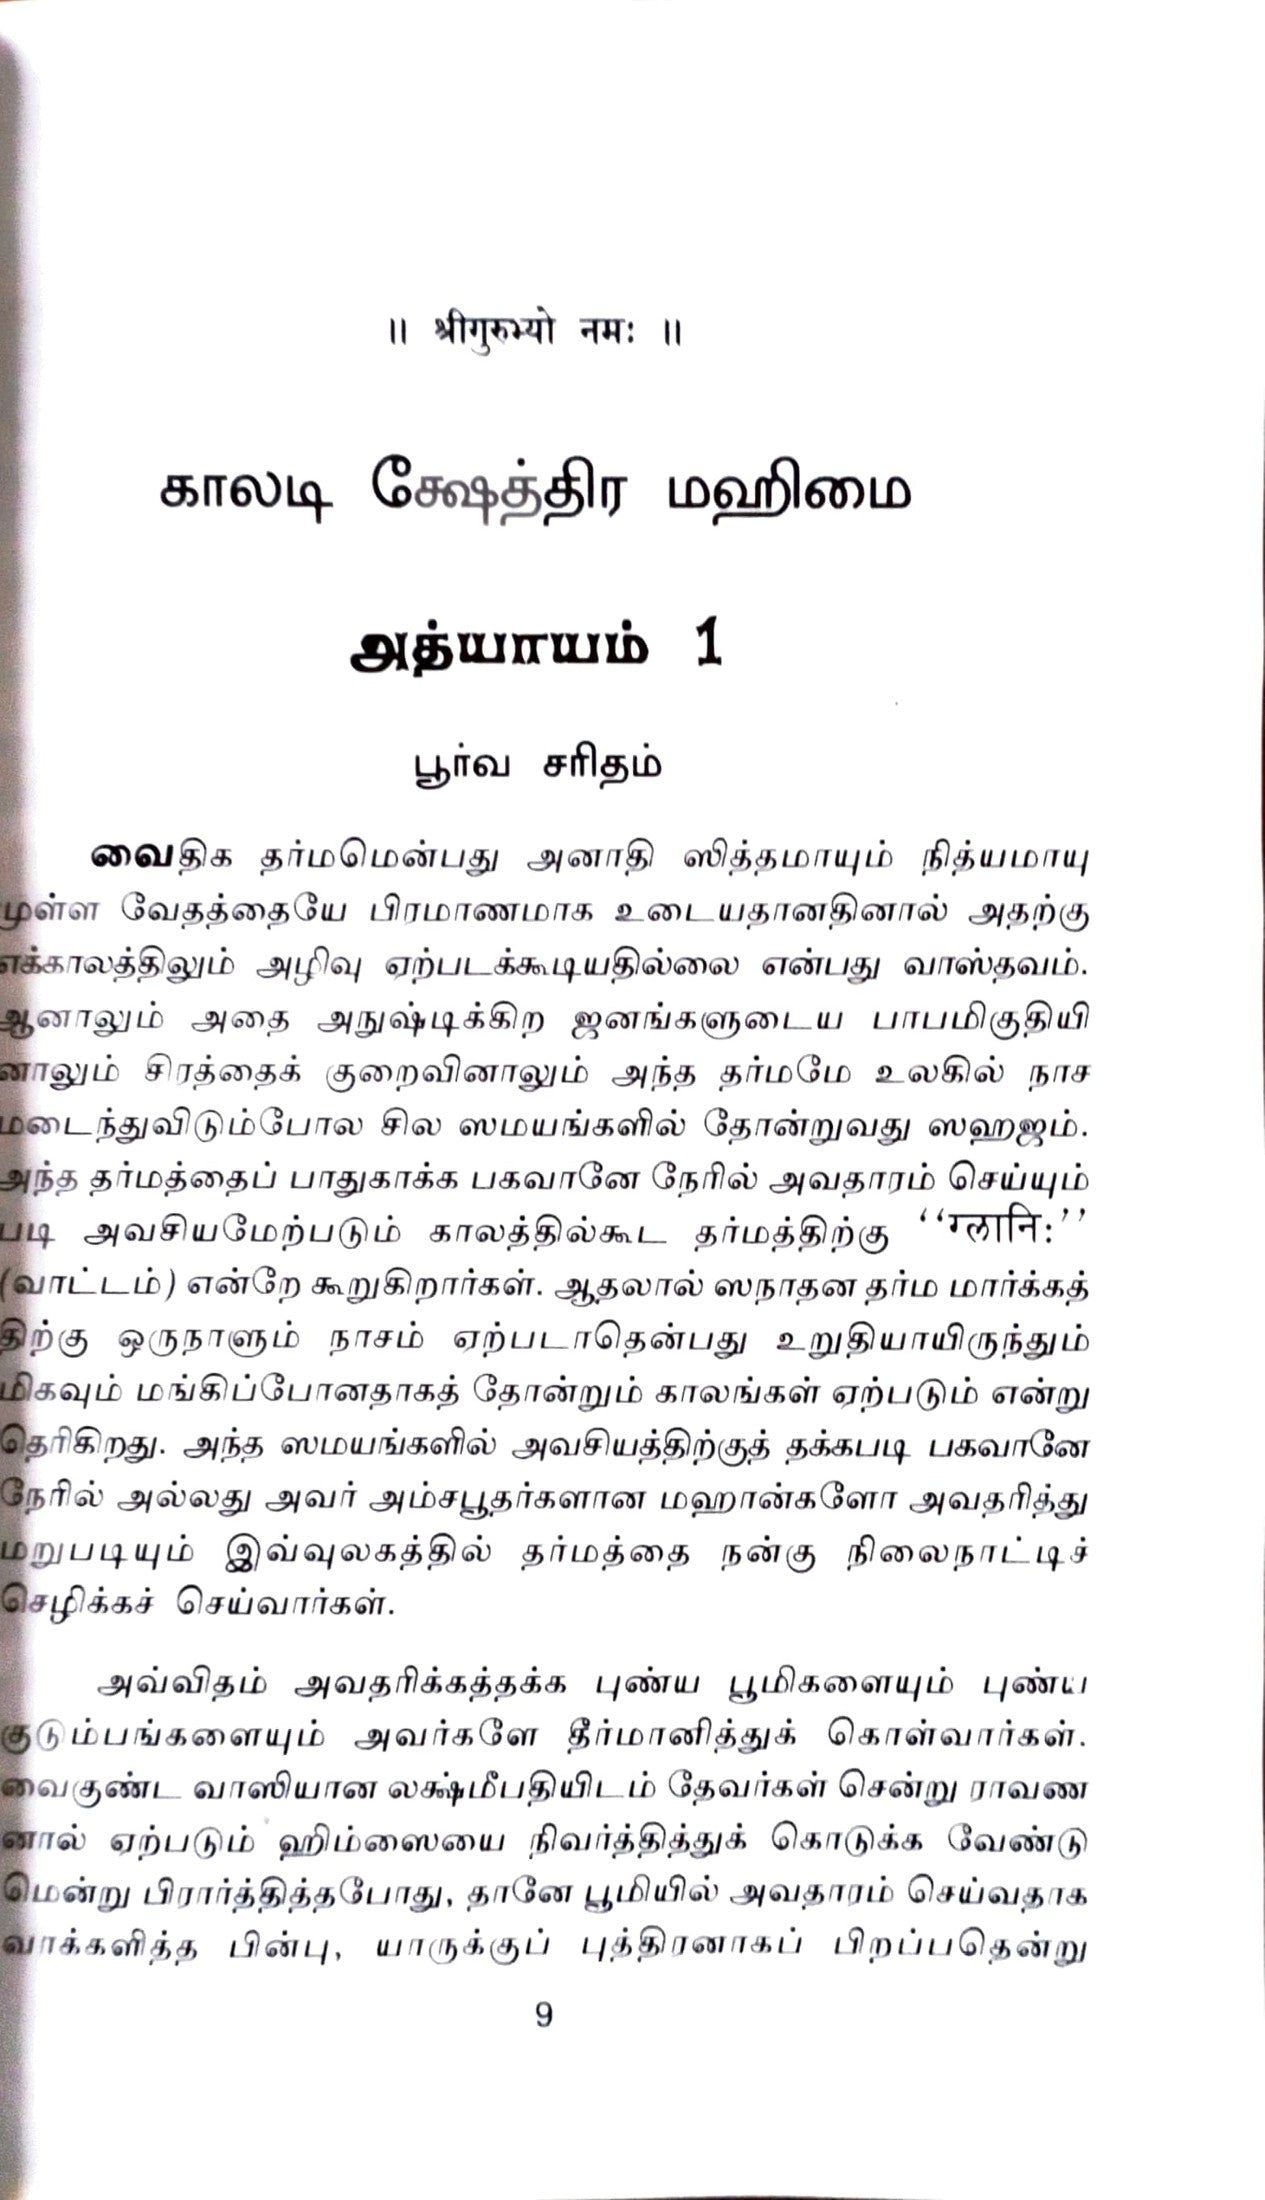 ॥ श्रीगुरुभ्यो नमः ॥
காலடி க்ஷேத்திர மஹிமை
அத்யாயம் 1
பூர்வ சரிதம்
வைதிக தர்மமென்பது அனாதி ஸித்தமாயும் நித்யமாயு
முள்ள வேதத்தையே பிரமாணமாக உடையதானதினால் அதற்கு
எக்காலத்திலும் அழிவு ஏற்படக்கூடியதில்லை என்பது வாஸ்தவம்.
ஆனாலும் அதை அநுஷ்டிக்கிற ஜனங்களுடைய பாபமிகுதியி
னாலும் சிரத்தைக் குறைவினாலும் அந்த தர்மமே உலகில் நாச
மடைந்துவிடும்போல சில ஸமயங்களில் தோன்றுவது ஸஹஜம்.
அந்த தர்மத்தைப் பாதுகாக்க பகவானே நேரில் அவதாரம் செய்யும்
படி அவசியமேற்படும் காலத்தில்கூட தர்மத்திற்கு ‘‘ग्लानिः’’
(வாட்டம்) என்றே கூறுகிறார்கள். ஆதலால் ஸநாதன தர்ம மார்க்கத்
திற்கு ஒருநாளும் நாசம் ஏற்படாதென்பது உறுதியாயிருந்தும்
மிகவும் மங்கிப்போனதாகத் தோன்றும் காலங்கள் ஏற்படும் என்று
தெரிகிறது. அந்த ஸமயங்களில் அவசியத்திற்குத் தக்கபடி பகவானே
நேரில் அல்லது அவர் அம்சபூதர்களான மஹான்களோ அவதரித்து
மறுபடியும் இவ்வுலகத்தில் தர்மத்தை நன்கு நிலைநாட்டிச்
செழிக்கச் செய்வார்கள்.
அவ்விதம் அவதரிக்கத்தக்க புண்ய பூமிகளையும் புண்ய
குடும்பங்களையும் அவர்களே தீர்மானித்துக் கொள்வார்கள்.
வைகுண்ட வாஸியான லக்ஷ்மீபதியிடம் தேவர்கள் சென்று ராவண
னால் ஏற்படும் ஹிம்ஸையை நிவர்த்தித்துக் கொடுக்க வேண்டு
மென்று பிரார்த்தித்தபோது, தானே பூமியில் அவதாரம் செய்வதாக
வாக்களித்த பின்பு, யாருக்குப் புத்திரனாகப் பிறப்பதென்று
9